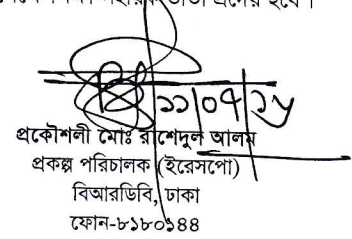 প্রদেয় হবে।
১১|০৭|১৮
প্রকৌশলী মোঃ রাশেদুল আলম
প্রকল্প পরিচালক (ইরেসপো)
বিআরডিবি, ঢাকা
ফোন-৮১৮০১৪৪